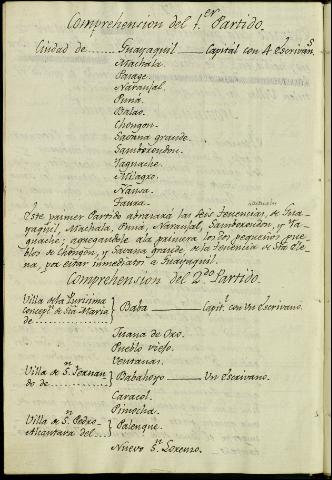 Comprehension del 1.er Partido.
Ciudad de Guayaquil Capital con 4 Escrivan.s
Machala.
Pasage.
Naranjal.
Puná.
Balao.
Chongon.
Savana grande.
Samborondon.
Yaguache.
Milagro.
Nausa.
Taura.
Este primer Partido abrazará las seis Tenencias, de Gua-
yaquil, Machala, Puná, Naranjal, Samborondon, y Ya-
guache; agregandole á la primera los dos pequeños pue-
blos de Chongon, y Savana grande de la tenencia de Sta Ele-
na, por estar inmediatos a Guayaquil.
Comprehension del 2.do Partido.
Villa de la Purisima
concepn. de Sta Maria
de
Baba Capit.l con Un escrivano.
Juana de Oro.
Pueblo viejo.
Ventanas.
Villa de Sn. Fernan
do de
Babahoyo Un escrivano.
Caracol.
Pimocha.
Villa de Sn. Pedro
Alcantara del
Palenque.
Nuevo Sn. Lorenzo.